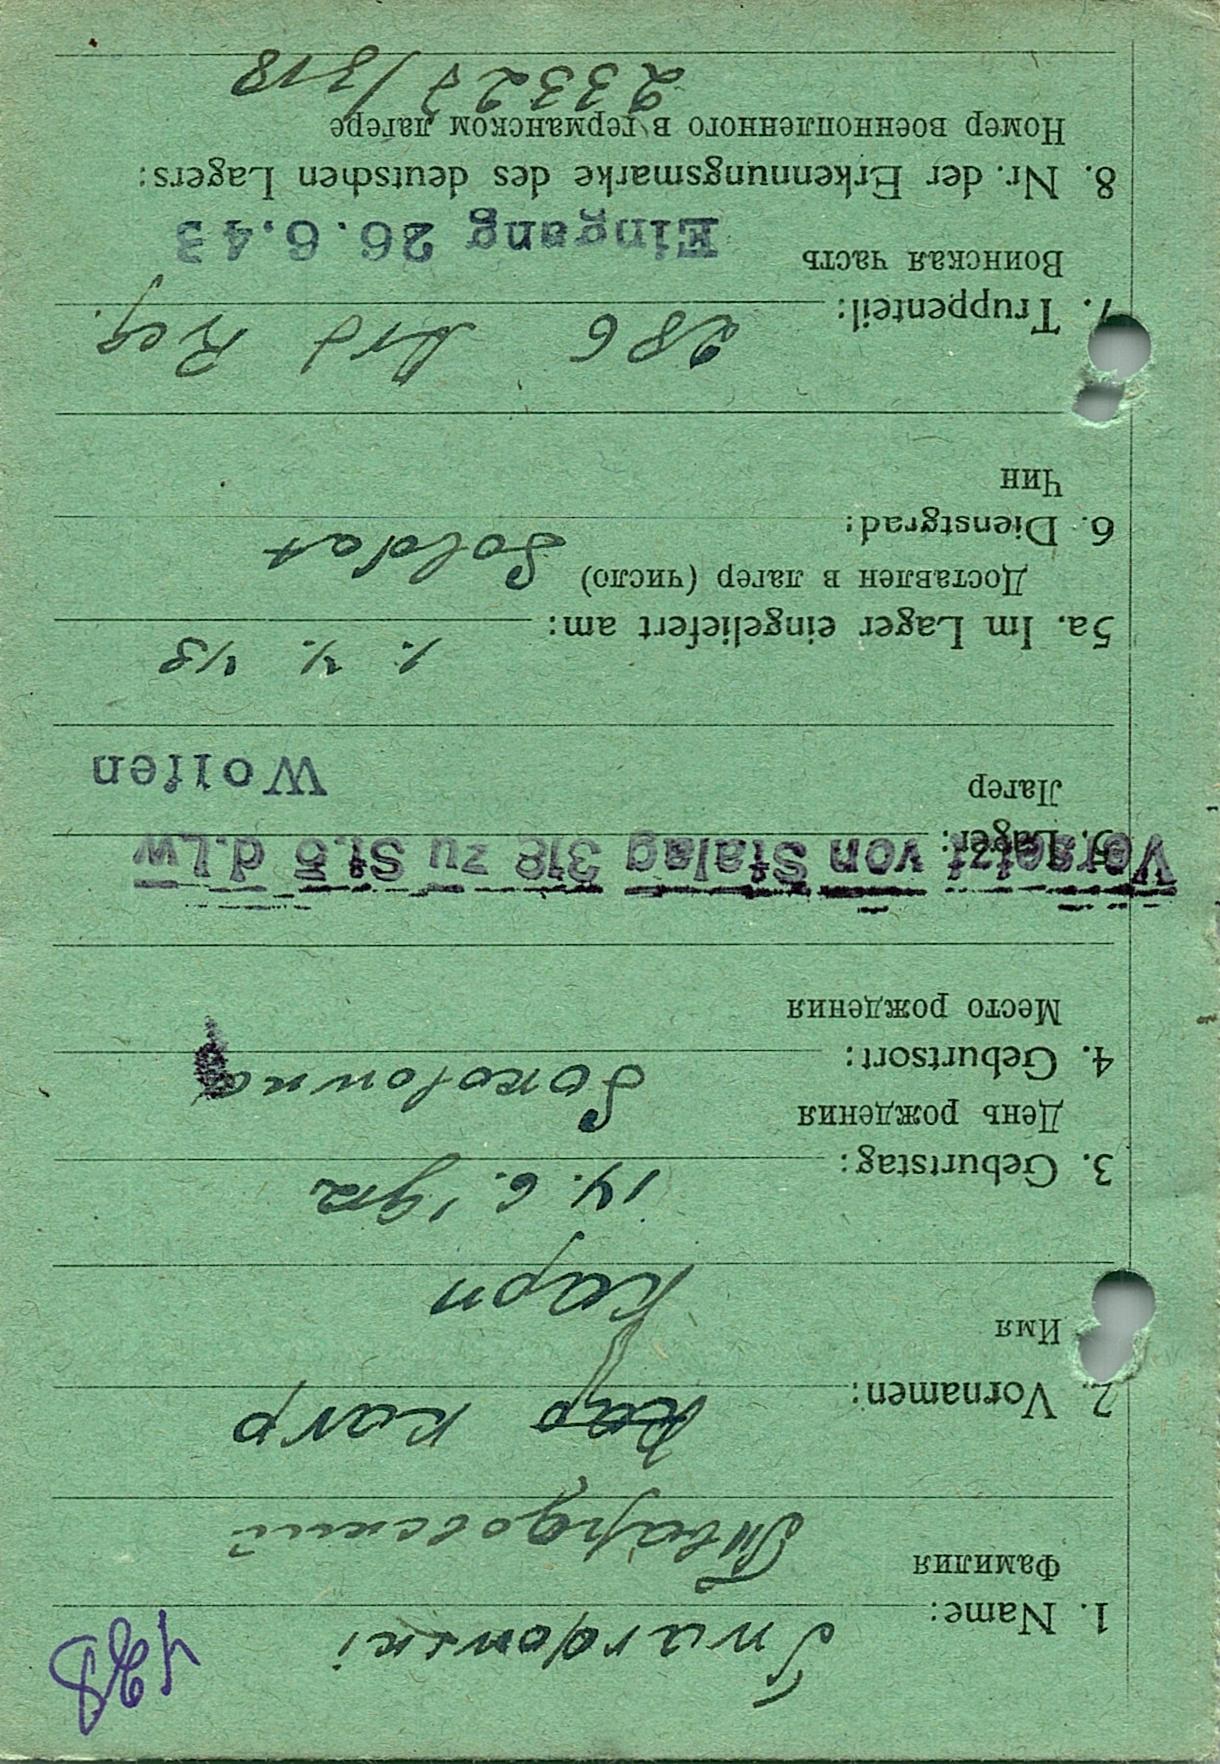 438
1. Name: Twardowski
Фамилия Твардовский
2. Vornamen: Кар Karp
Имя Карп
3. Geburtstag: 14. 6. 1912
День рождения
4. Geburtsort: Sokolowna
Место рождения
Versetzt von Stalag 318 zu St.5 d.Lw
5. Lager:
Лагер Wolfen
5a. Im Lager eingeliefert am: 1. 4. 43
Доставлен в лагер (число)
6. Dienstgrad: Soldat
Чин
7. Truppenteil: 286 Art Reg.
Воинская часть Eingang 26.6.43
8. Nr. der Erkennungsmarke des deutschen Lagers:
Номер военнопленного в германском лагере
23327/318